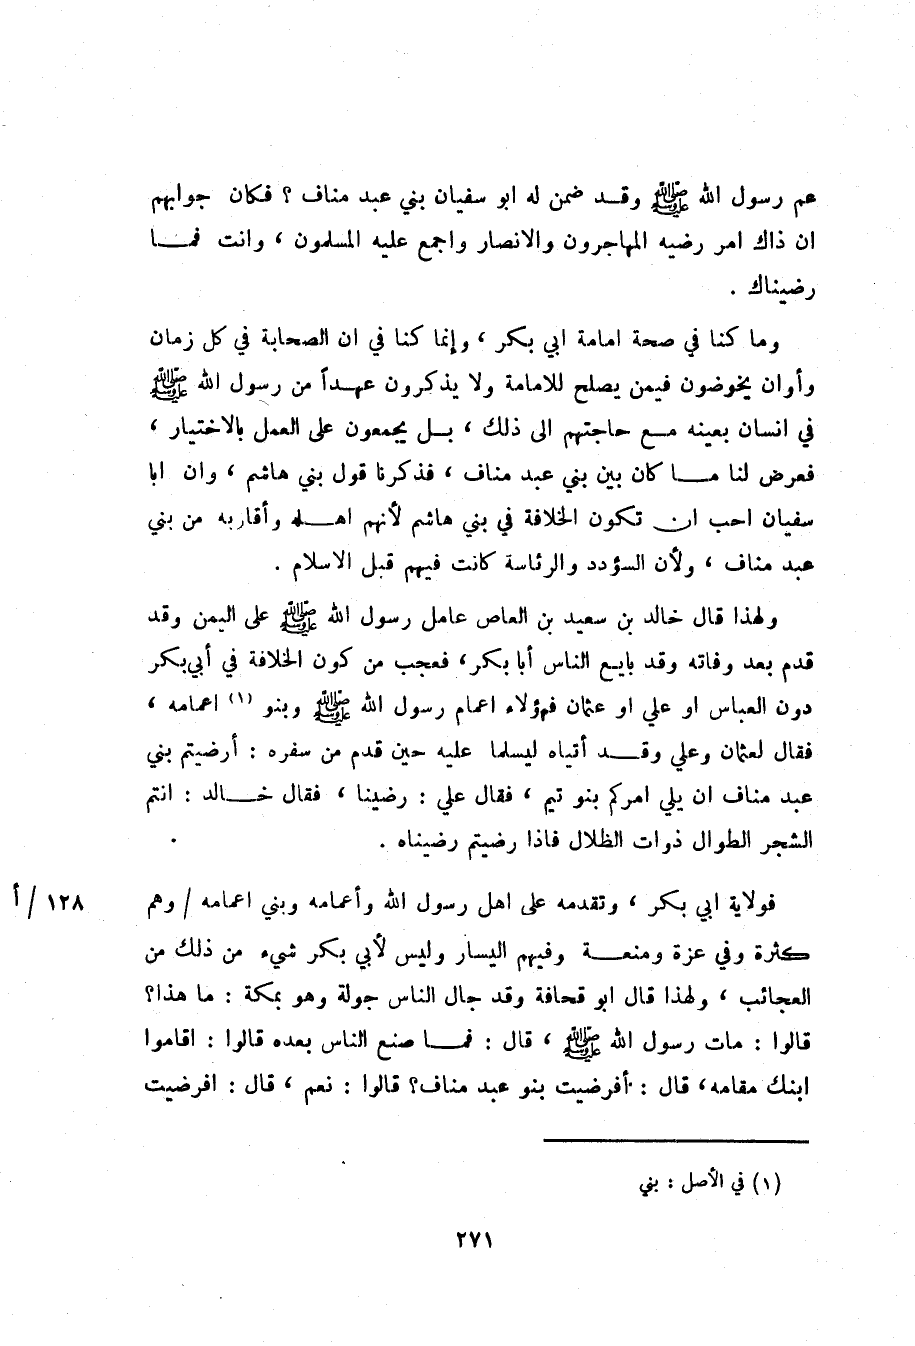 عم رسول الله ﷺ وقد ضمن له ابو سفيان بني عبد مناف ؟ فكان جوابهم
ان ذاك امر رضيه المهاجرون والانصار واجمع عليه المسلمون ، وانت فما
رضيناك .
وما كنا في صحة امامة ابي بكر ، وإنما كنا في ان الصحابة في كل زمان
وأوان يخوضون فيمن يصلح للامامة ولا يذكرون عهداً من رسول الله ﷺ
في انسان بعينه مع حاجتهم الى ذلك ، بل يجمعون على العمل بالاختيار ،
فعرض لنا ما كان بين بني عبد مناف ، فذكرنا قول بني هاشم ، وان ابا
سفيان احب ان تكون الخلافة في بني هاشم لأنهم اهله وأقاربه من بني
عبد مناف ، ولأن السؤدد والرئاسة كانت فيهم قبل الاسلام .
ولهذا قال خالد بن سعيد بن العاص عامل رسول الله ﷺ على اليمن وقد
قدم بعد وفاته وقد بايع الناس أبا بكر، فعجب من كون الخلافة في أبي بكر
دون العباس او علي او عثمان فهؤلاء اعمام رسول الله ﷺ وبنو (١) اعمامه ،
فقال لعثمان وعلي وقد أتياه ليسلما عليه حين قدم من سفره : أرضيتم بني
عبد مناف ان يلي امركم بنو تيم ، فقال علي : رضينا ، فقال خالد : انتم
الشجر الطوال ذوات الظلال فاذا رضيتم رضيناه .
فولاية ابي بكر ، وتقدمه على اهل رسول الله وأعمامه وبني اعمامه / وهم ١٢٨ / أ
كثرة وفي عزة ومنعة وفيهم اليسار وليس لأبي بكر شيء من ذلك من
العجائب ، ولهذا قال ابو قحافة وقد جال الناس جولة وهو بمكة : ما هذا؟
قالوا : مات رسول الله ﷺ ، قال : فما صنع الناس بعده قالوا : اقاموا
ابنك مقامه، قال : أفرضيت بنو عبد مناف؟ قالوا : نعم ، قال : افرضيت
(١) في الأصل : بني
٢٧١